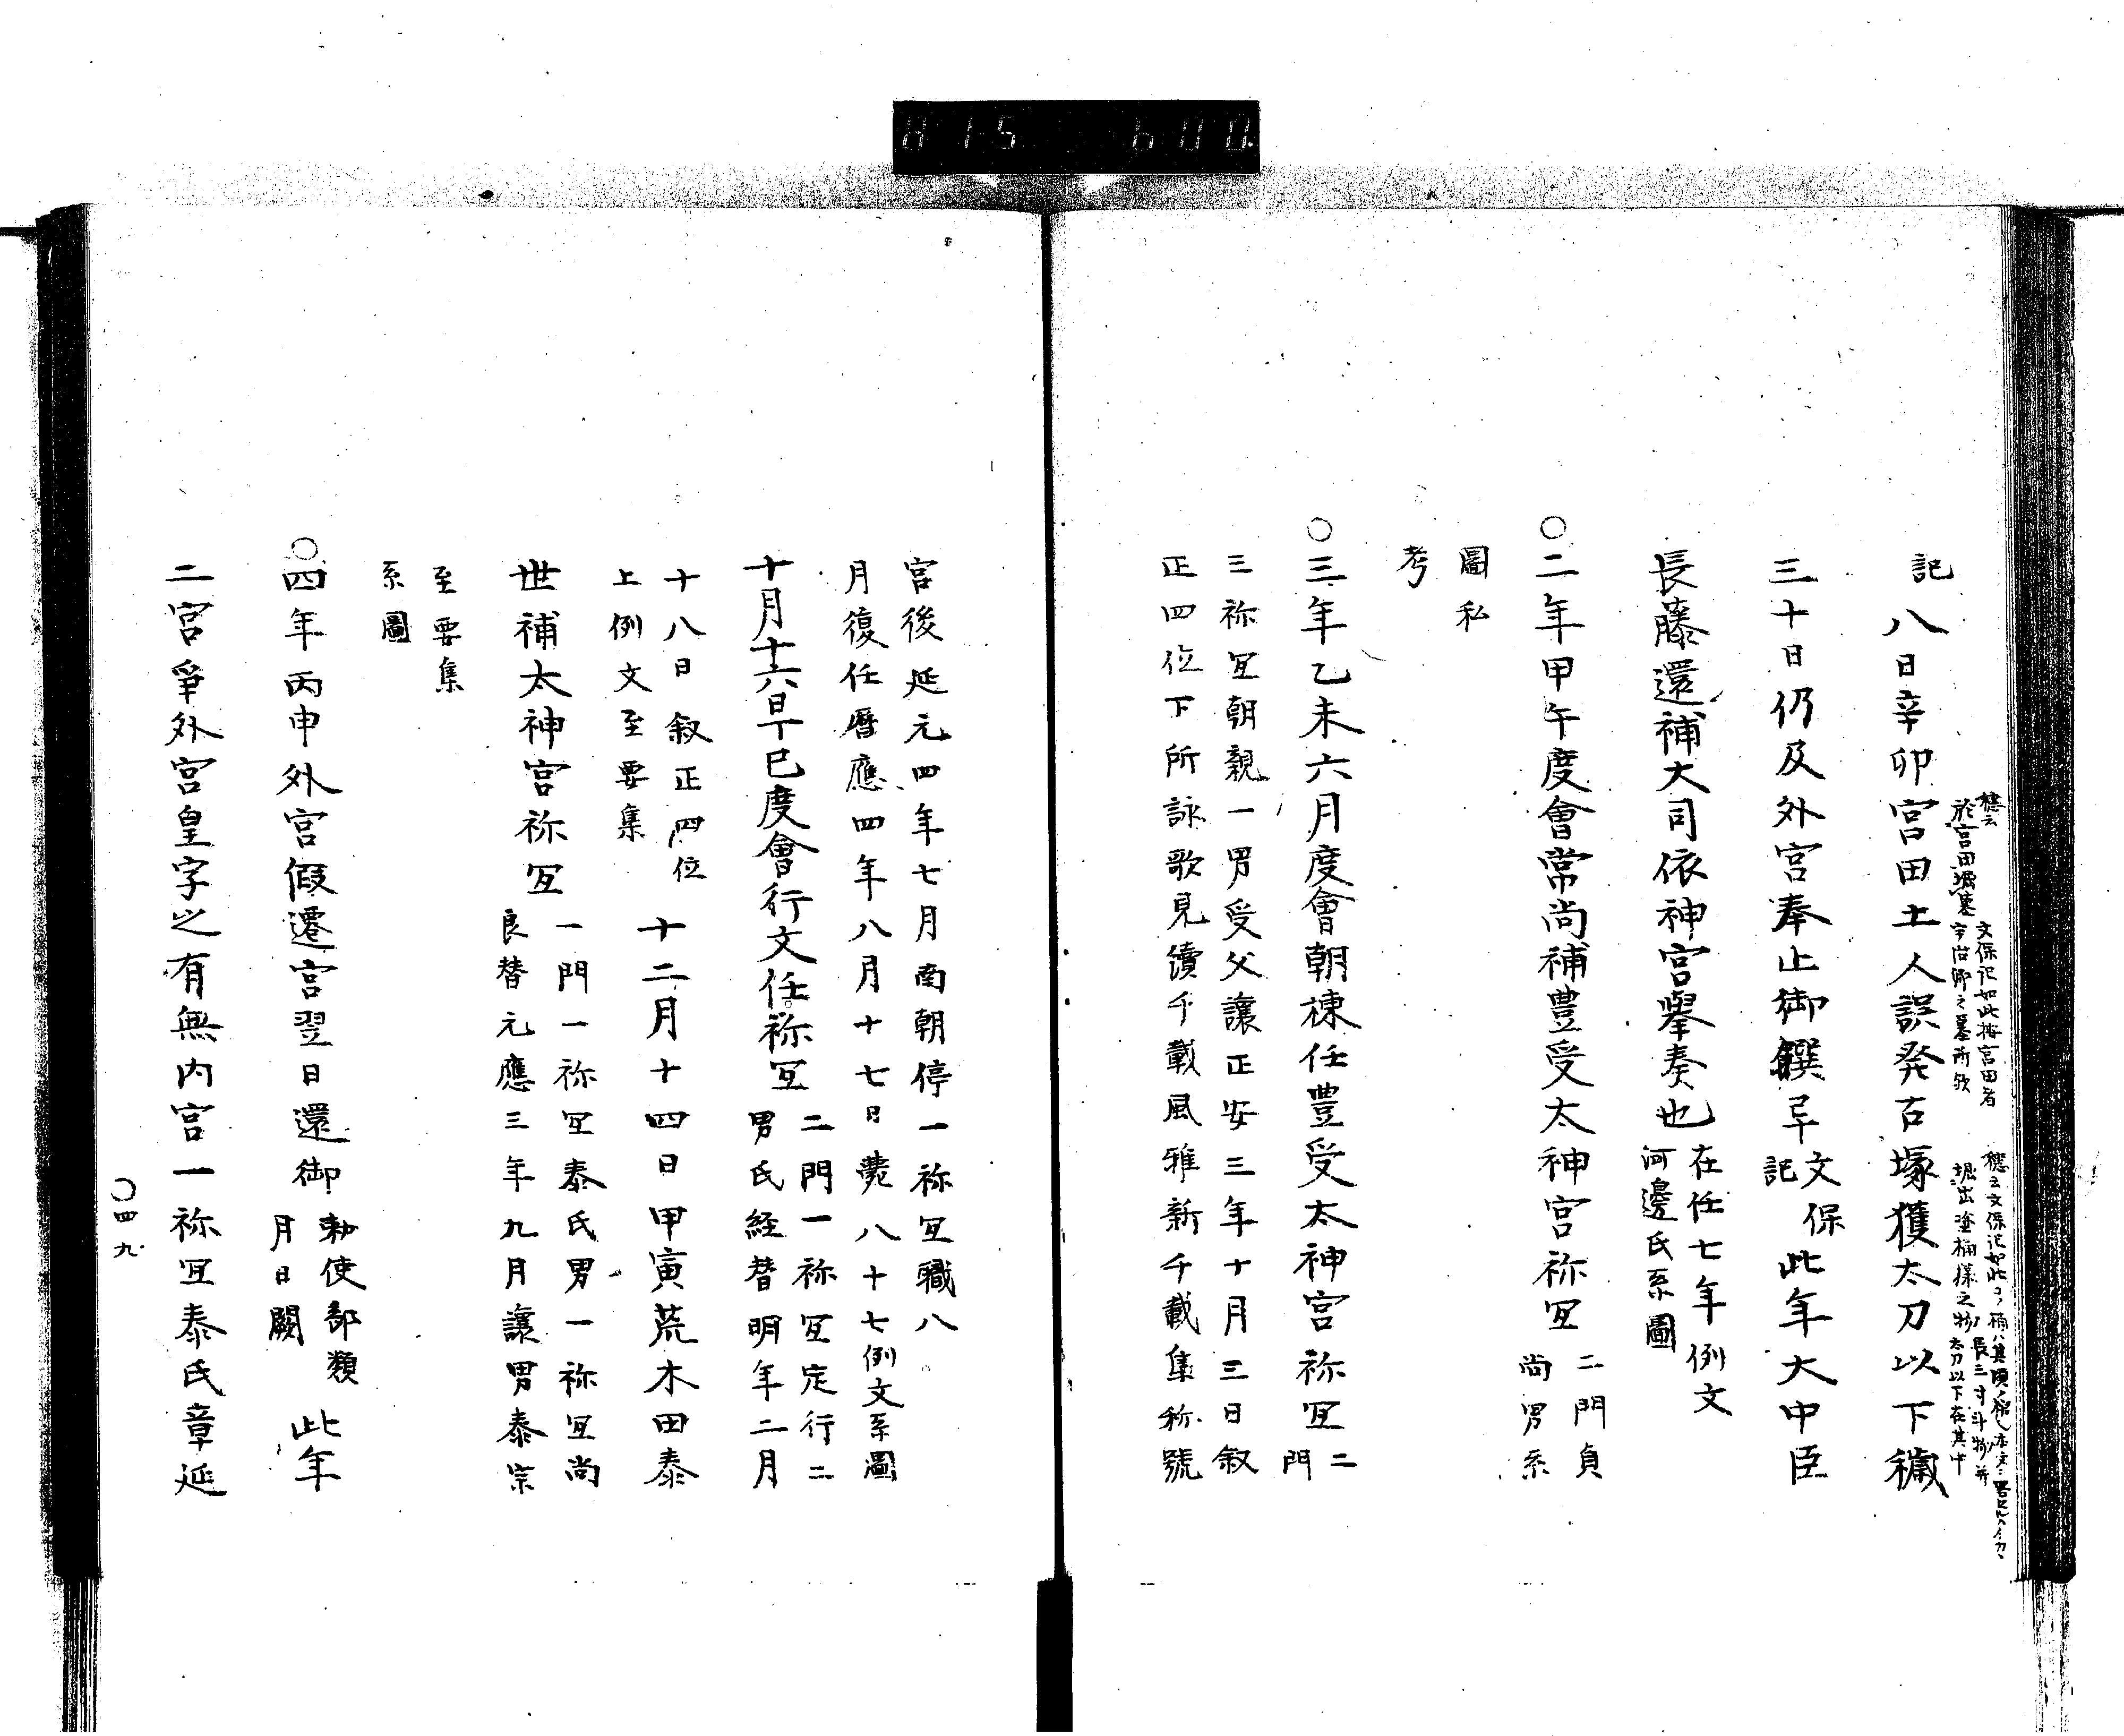 記 八日辛卯宮田土人誤発古塚獲太刀以下穢
三十日仍及外宮奉止御饌畢 文保記 此年大中臣
長藤還補大司依神宮擧奏也 在任七年例文
河邊氏系圖
○二年甲午度會常尚補豊受太神宮祢冝 二門貞
尚男系
圖私
考
○三年乙未六月度會朝棟任豊受太神宮祢冝 二
門
三祢冝朝親一男受父讓正安三年十月三日叙
正四位下所詠歌見續千載風雅新千載集称號
宮後延元四年七月南朝停一祢冝職八
月復任暦應四年八月十七日薨八十七例文系圖
十月十六日丁巳度會行文任祢冝 二門一祢冝定行二
男氏経替明年二月
十八日叙正四位
上例文至要集
十二月十四日甲寅荒木田泰
世補太神宮祢冝 一門一祢冝泰氏男一祢冝尚
良替元應三年九月讓男泰宗
至要集
系圖
○四年丙申外宮假遷宮翌日還御 勅使部類
月日闕
此年
二宮爭外宮皇字之有無内宮一祢冝泰氏章延
〇四九
於宮田堀墓
文保記如此按宮田者
宇治郷之墓所歟
堀出塗桶様之物
長三寸斗物并
太刀以下在其中
H15 600